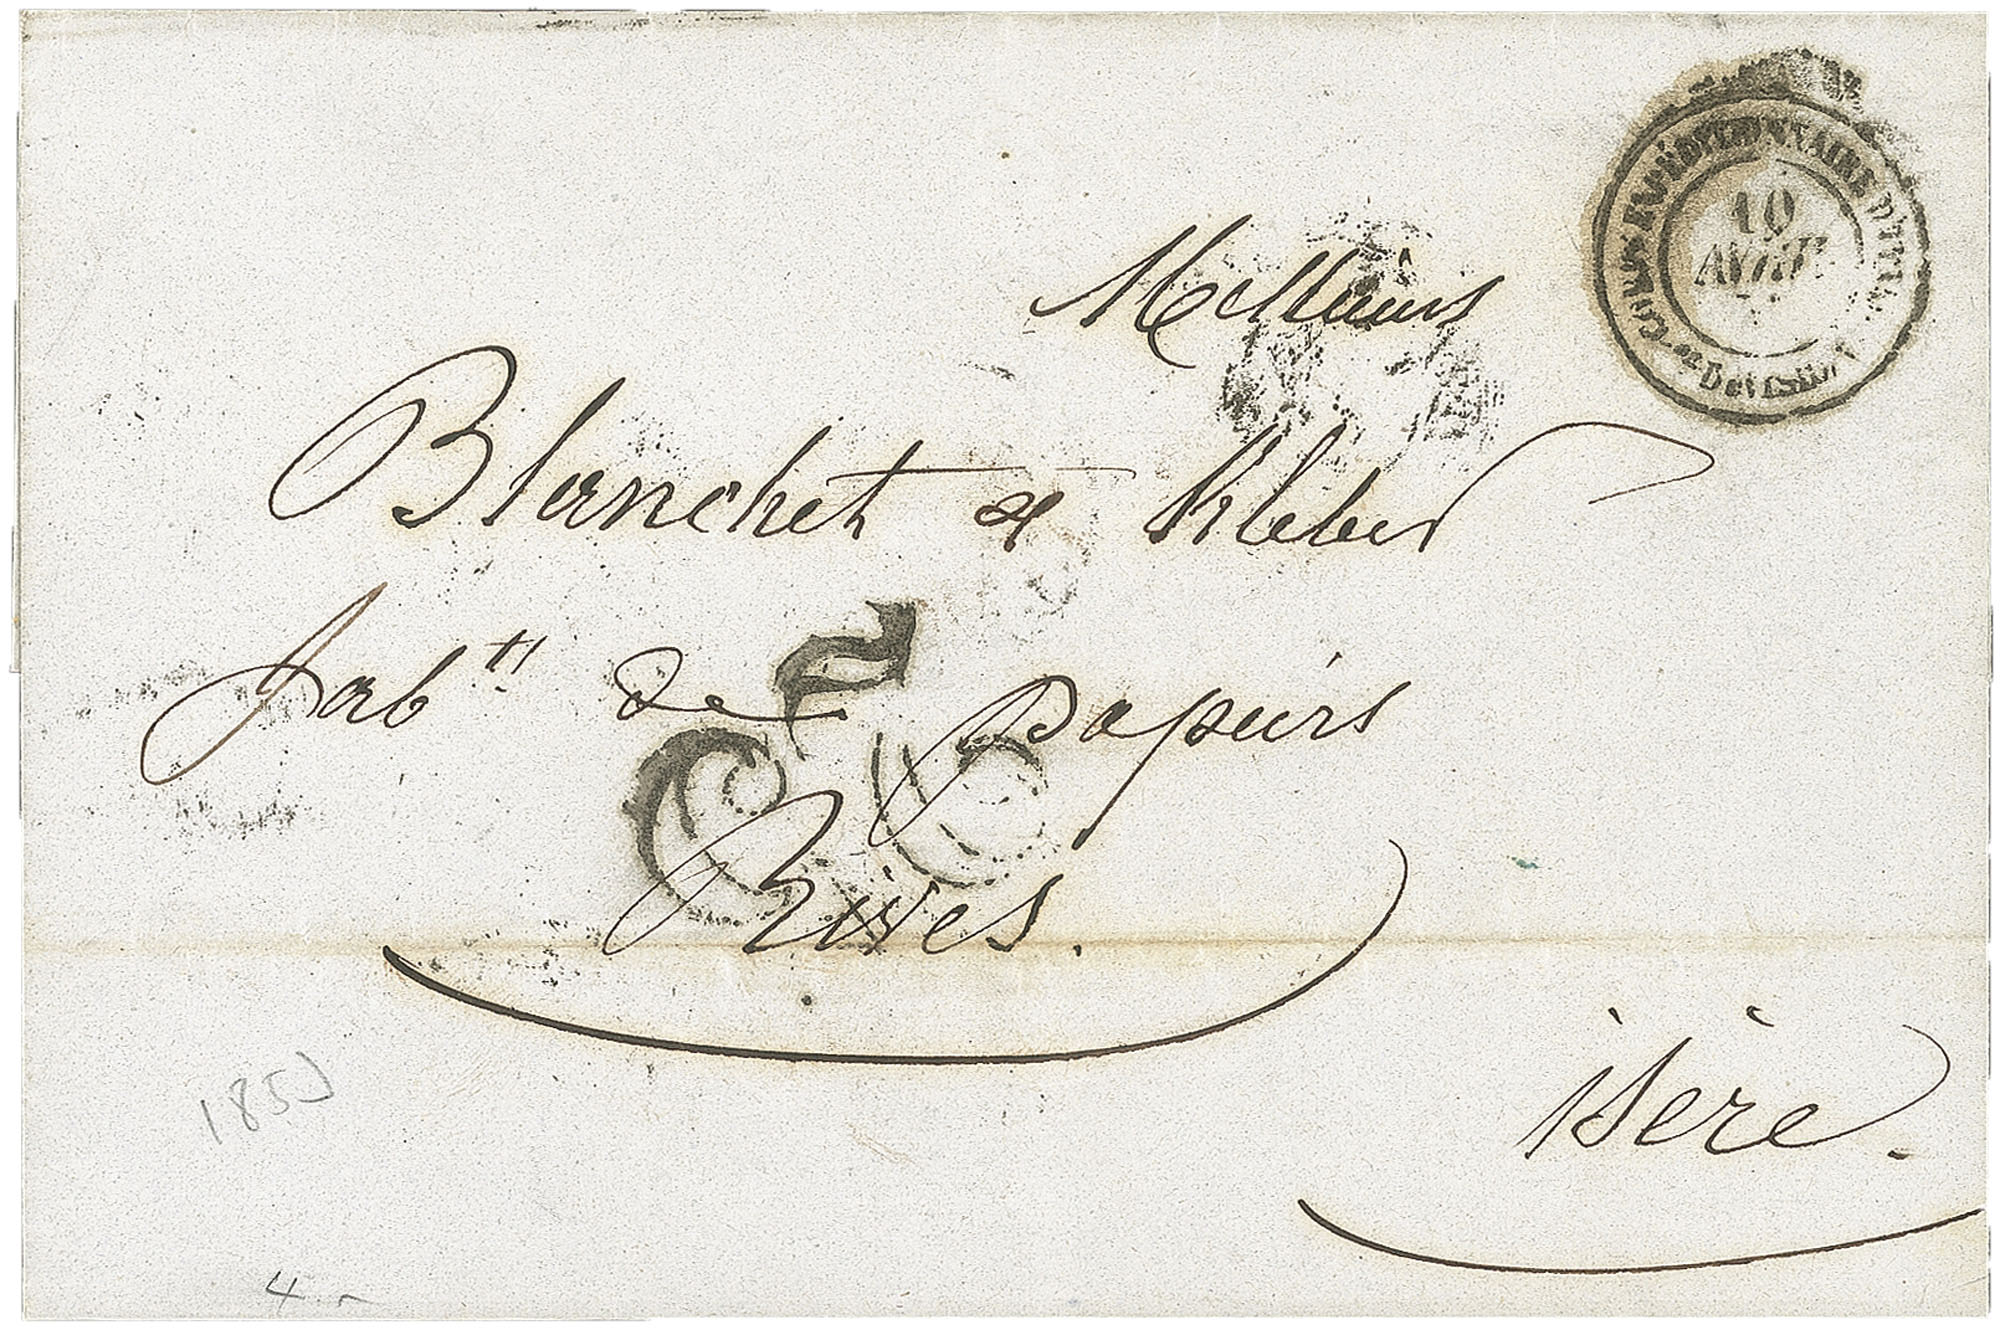 CORPS EXPÉDITIONNAIRE D'ITALIE
10
AVRIL
Messieurs
Blanchet & Kleber
Fab^ts de papiers
Rives.
isère.
185
4